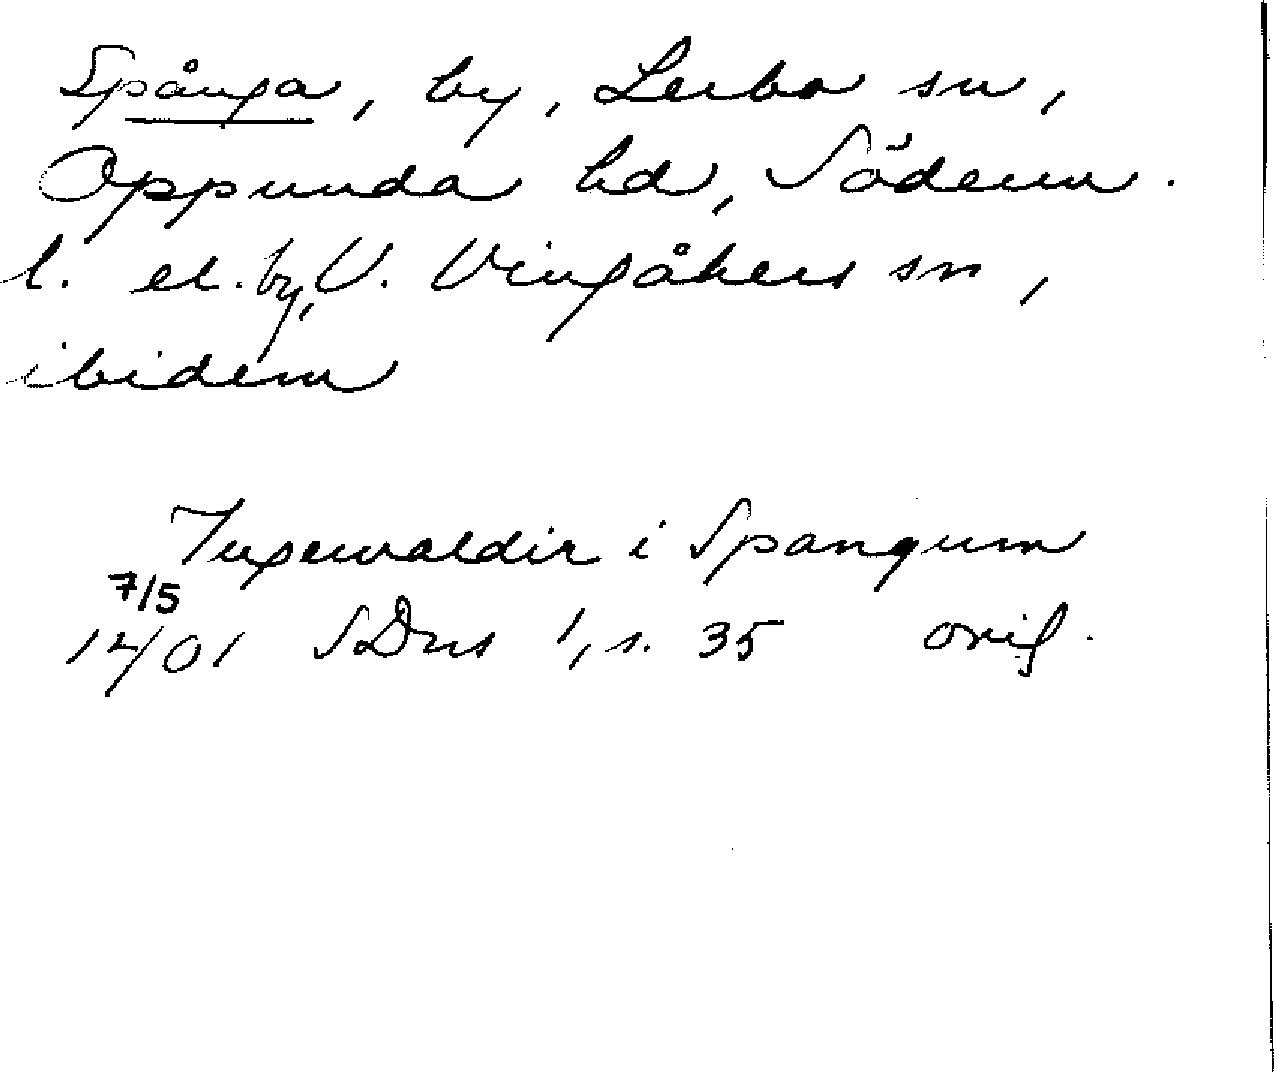 Spånga, by, Lerbo sn,
Oppunda hd, Söderm.
l. el. by, V. Vingåkers sn,
ibidem
Ingewaldir i Spangum
7/5
14/01 SDns 1, s. 35 orig.